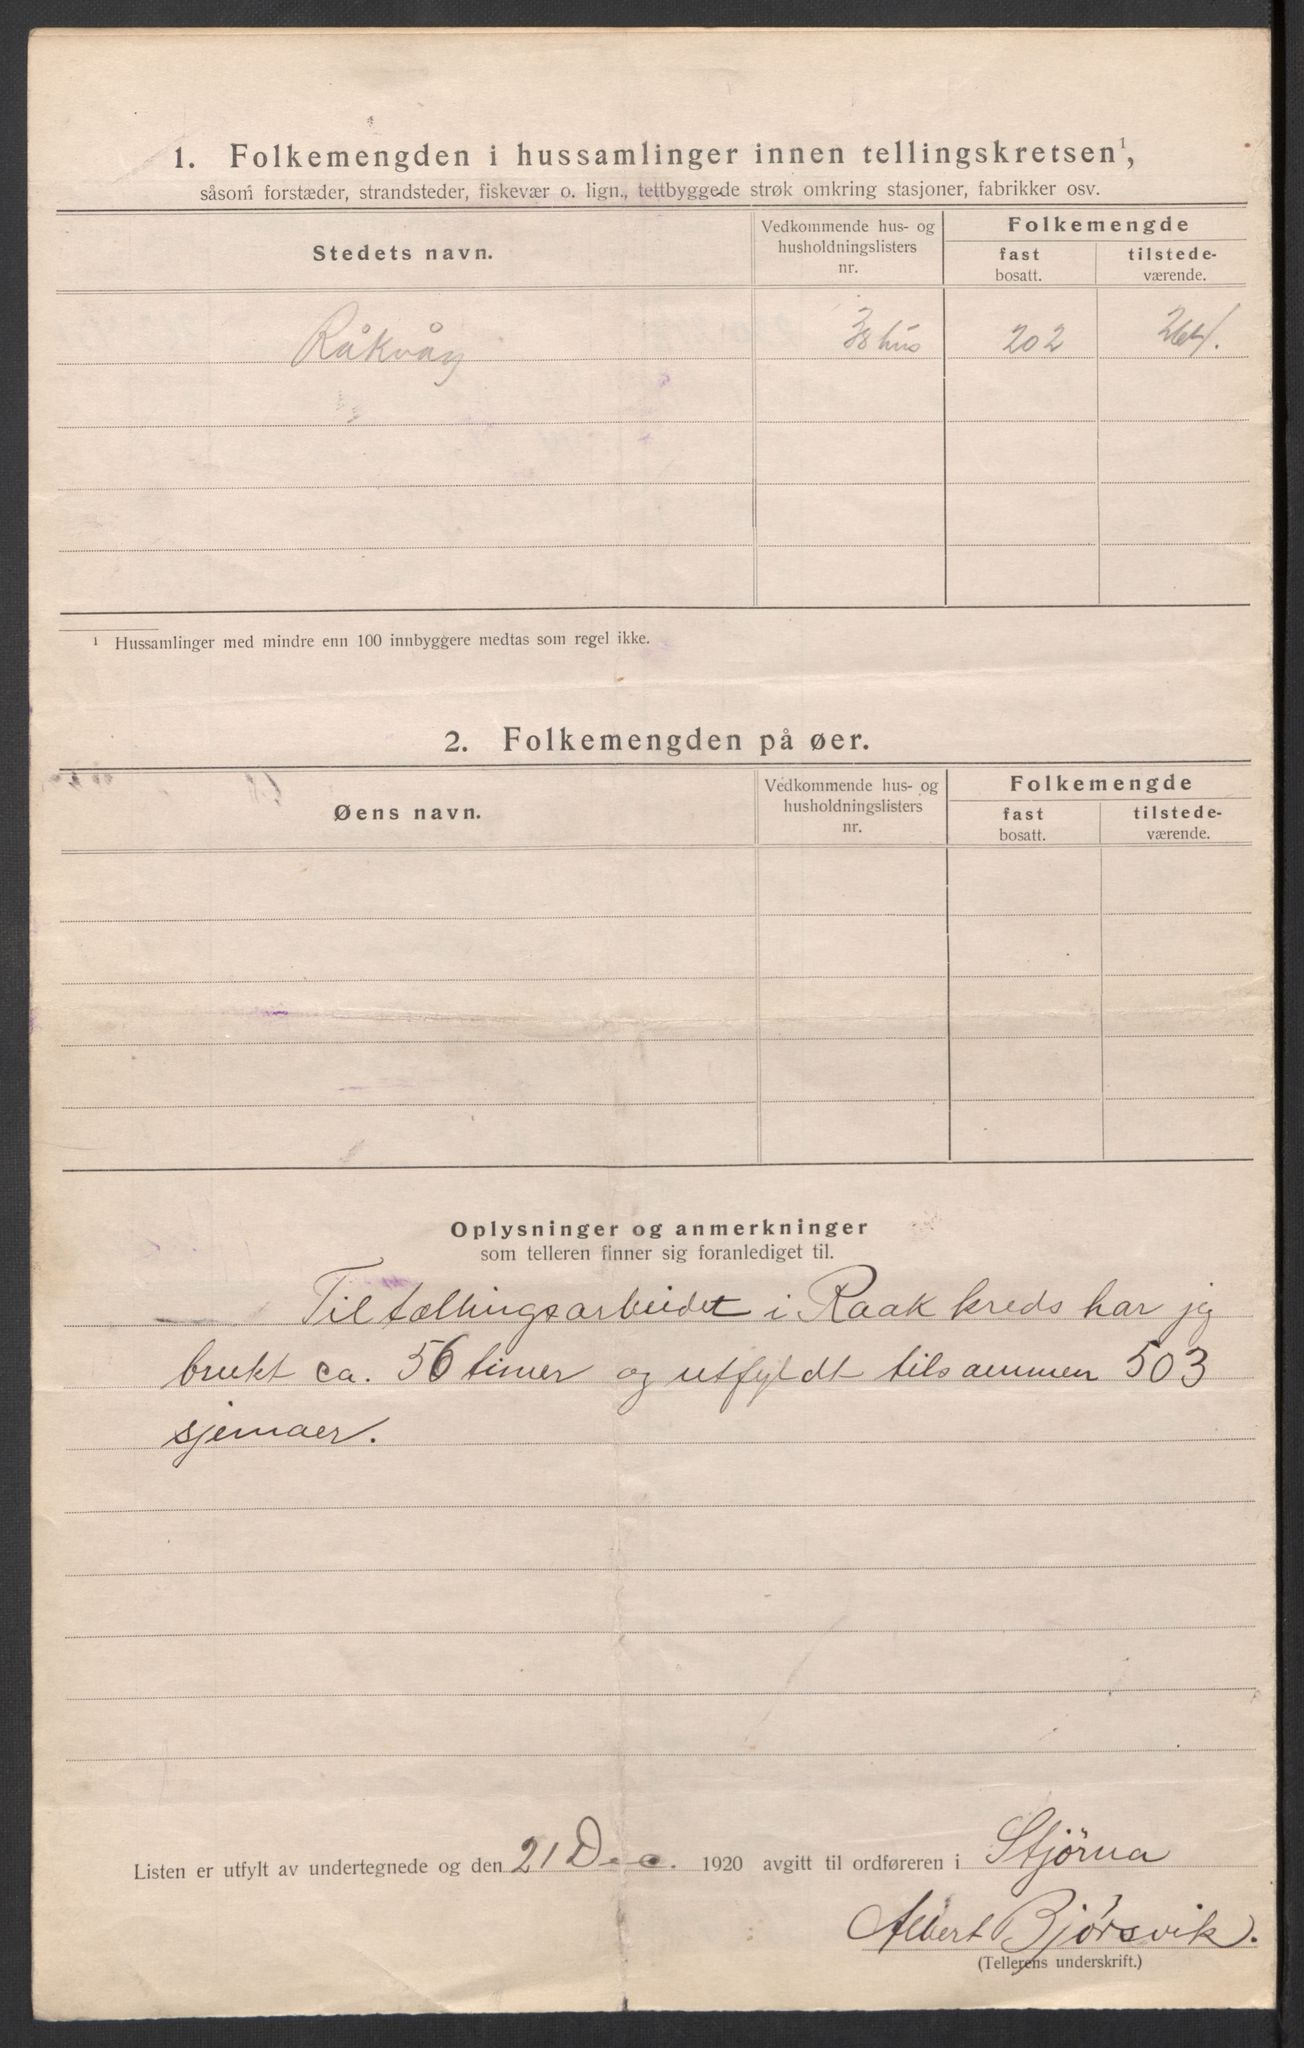 1. Folkemengden i hussamlinger innen tellingskretsen¹,
såsom forstæder, strandsteder, fiskevær o. lign., tettbyggede strøk omkring stasjoner, fabrikker osv.
Stedets navn.
Vedkommende hus- og
husholdningslisters
nr.
Folkemengde
fast
bosatt.
tilstede-
værende.
Råkvåg
38 hus
202
264.
¹ Hussamlinger med mindre enn 100 innbyggere medtas som regel ikke.
2. Folkemengden på øer.
Øens navn.
Vedkommende hus- og
husholdningslisters
nr.
Folkemengde
fast
bosatt.
tilstede-
værende.
Oplysninger og anmerkninger
som telleren finner sig foranlediget til.
Til tællingsarbeidet i Raak kreds har jeg
brukt ca. 56 timer og utfyldt tilsammen 503
sjemaer.
Listen er utfylt av undertegnede og den 21 Dec. 1920 avgitt til ordføreren i Stjørna
Albert Bjørsvik.
(Tellerens underskrift.)